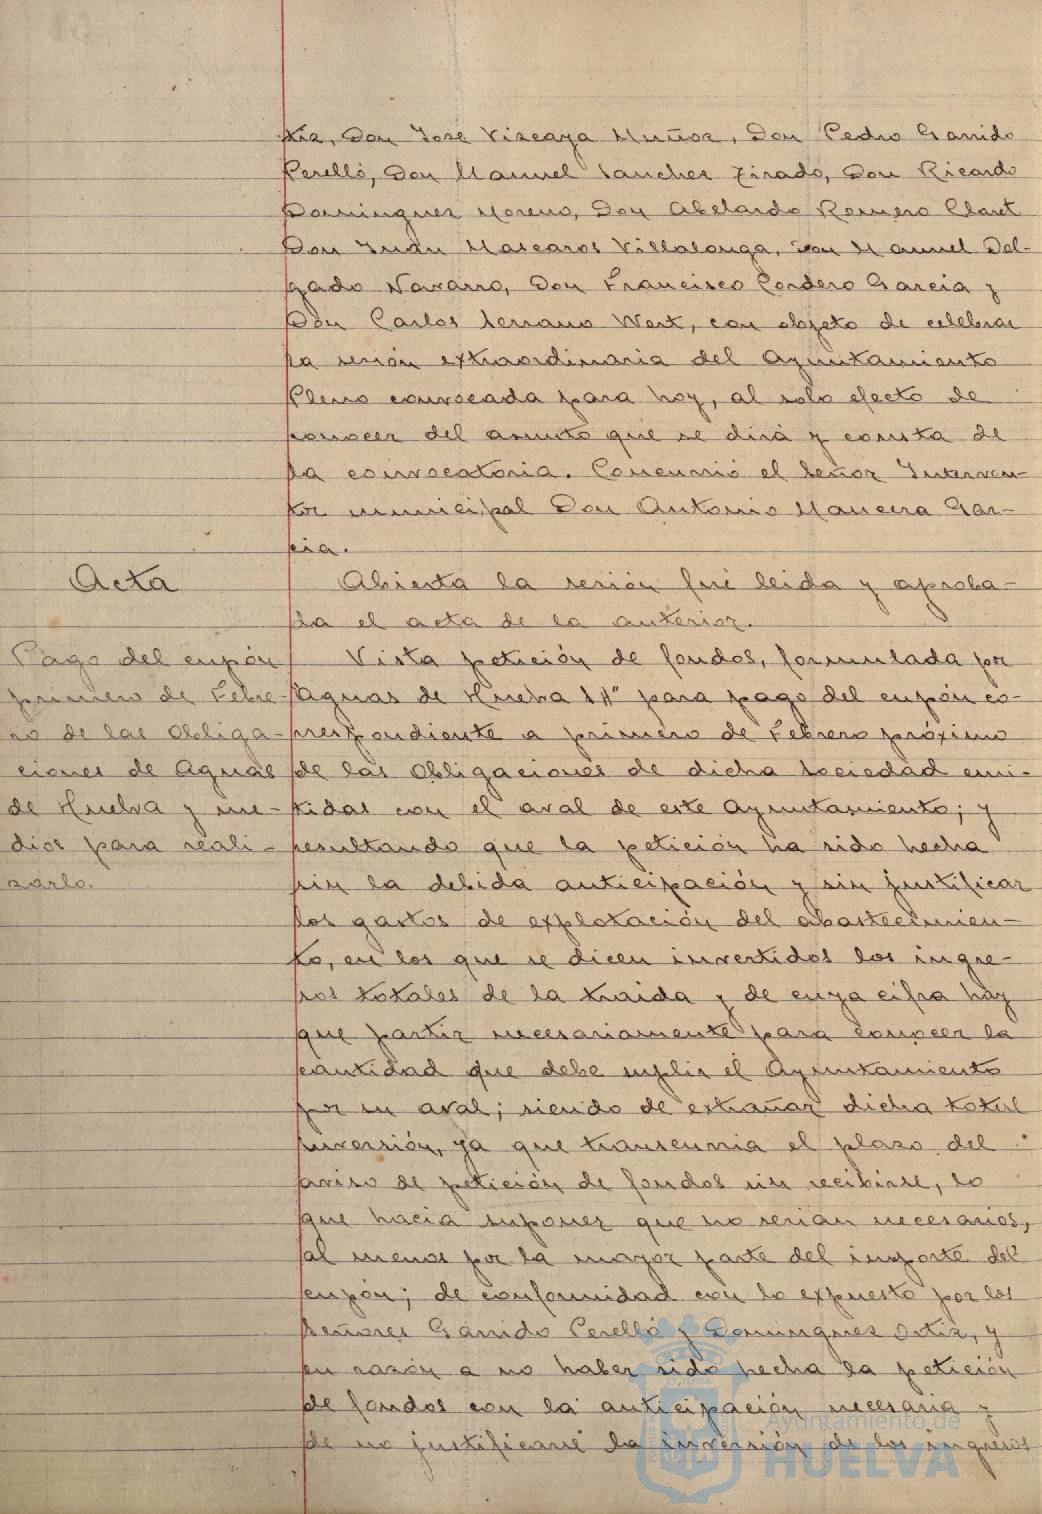 tiz, Don José Vizcaya Muñoz, Don Pedro Garrido
Perelló, Don Manuel Sanchez Tirado, Don Ricardo
Dominguez Moreno, Don Abelardo Romero Claret
Don Juan Mascaros Villalonga, Don Manuel Del-
gado Navarro, Don Francisco Cordero Garcia y
Don Carlos Serrano Wert, con objeto de celebrar
la sesión extraordinaria del Ayuntamiento
Pleno convocada para hoy, al solo efecto de
conocer del asunto que se dirá y consta de
la convocatoria. Concurrió el Señor Interven-
tor municipal Don Antonio Mancera Gar-
cia.
Acta
Abierta la sesión fué leida y aproba-
da el acta de la anterior.
Pago del cupón
primero de Febre-
ro de las Obliga-
ciones de Aguas
de Huelva y me-
dios para reali-
zarlo.
Vista petición de fondos, formulada por
"Aguas de Huelva S A" para pago del cupón co-
rrespondiente a primero de Febrero próximo
de las Obligaciones de dicha Sociedad emi-
tidas con el aval de este Ayuntamiento; y
resultando que la petición ha sido hecha
sin la debida anticipación y sin justificar
los gastos de explotación del abastecimien-
to, en los que se dicen invertidos los ingre-
sos totales de la traida y de cuya cifra hay
que partir necesariamente para conocer la
cantidad que debe suplir el Ayuntamiento
por su aval; siendo de extrañar dicha total
inversión, ya que transcurria el plazo del
aviso de petición de fondos sin recibirse, lo
que hacia suponer que no serian necesarios,
al menos por la mayor parte del importe del
cupón; de conformidad con lo expuesto por los
Señores Garrido Perelló y Dominguez Ortiz, y
en razón a no haber sido hecha la petición
de fondos con la anticipación necesaria y
de no justificarse la inversión de los ingresos
Ayuntamiento de
HUELVA